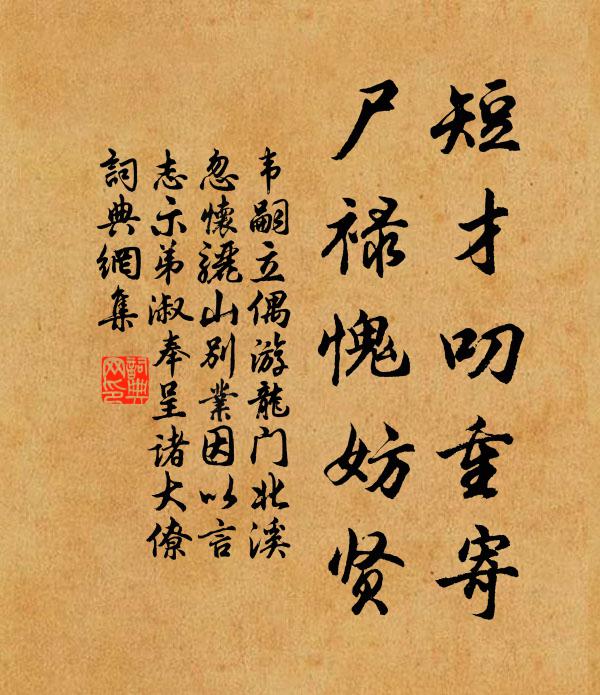 短才叨重寄
尸禄愧妨贤
韦嗣立偶游龍门北溪
忽懷骊山别業因以言
志示弟淑奉呈诸大僚
詞典網集
詞典网印